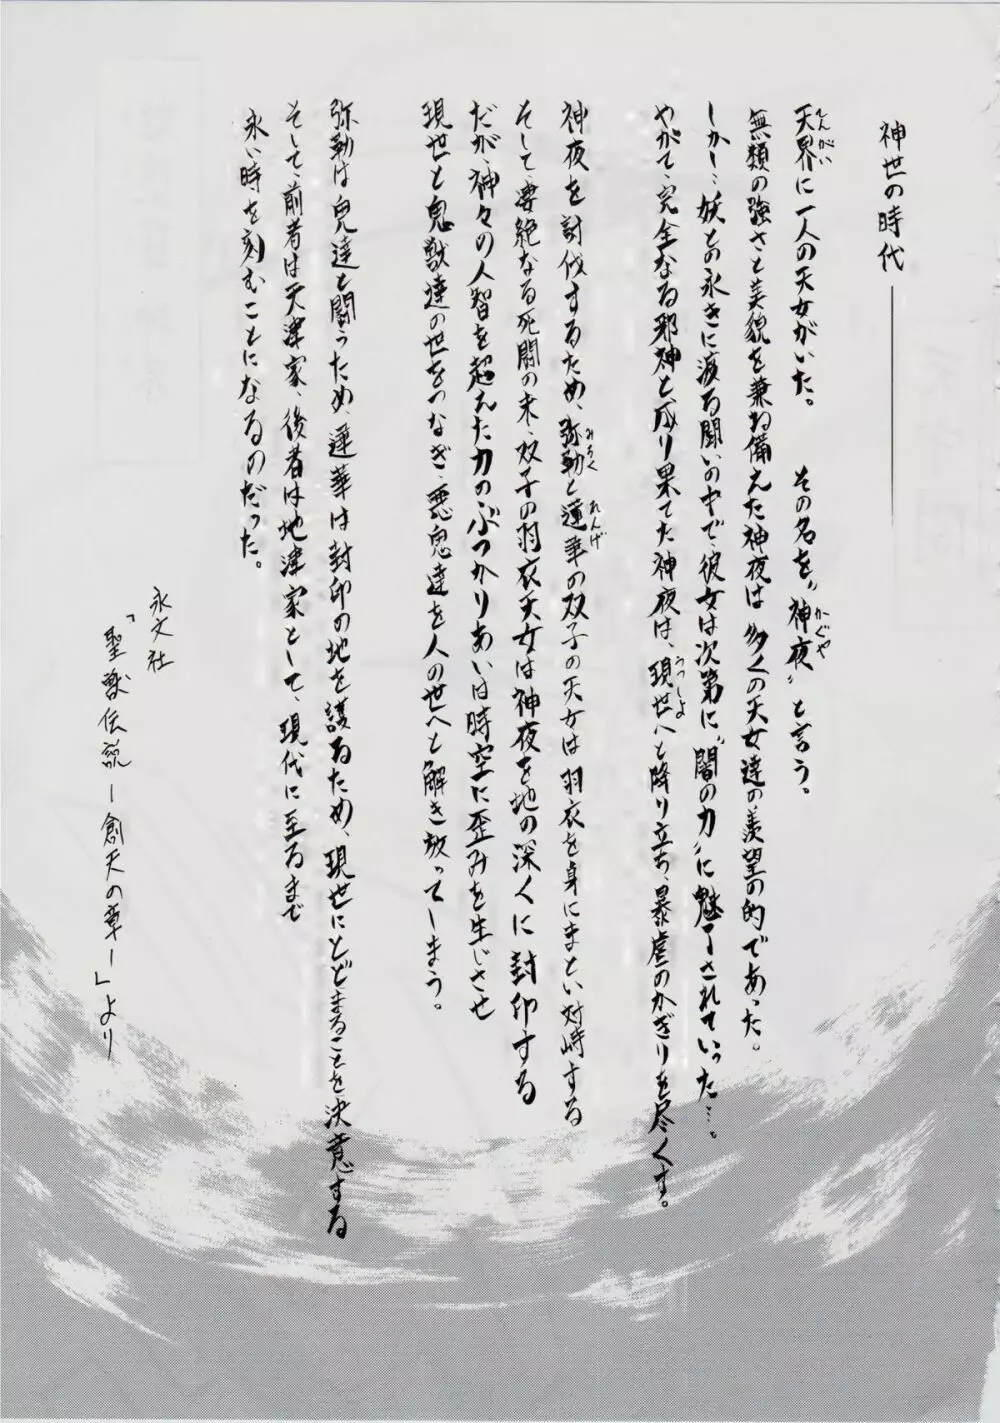 神世の時代――――
天界に一人の天女がいた。　その名を〝神夜〟と言う。
無類の強さと美貌を兼ね備えた神夜は多くの天女達の羨望の的であった。
しかし…妖との永きに渡る闘いの中で、彼女は次第に〝闇の力〟に魅了されていった…。
やがて、完全なる邪神と成り果てた神夜は、現世へと降り立ち、暴虐のかぎりを尽くす。
神夜を討伐するため、弥勒と蓮華の双子の天女は羽衣を身にまとい対峙する
そして、凄絶なる死闘の末、双子の羽衣天女は神夜を地の深くに封印する
だが、神々の人智を超えた力のぶつかりあいは時空に歪みを生じさせ
現世と鬼獣達の世をつなぎ、悪鬼達を人の世へと解き放ってしまう。
弥勒は鬼達と闘うため、蓮華は封印の地を護るため、現世にとどまることを決意する
そして、前者は天津家、後者は地津家として、現代に至るまで
永い時を刻むことになるのだった。
永文社
「聖獣伝説ー創天の章ー」より